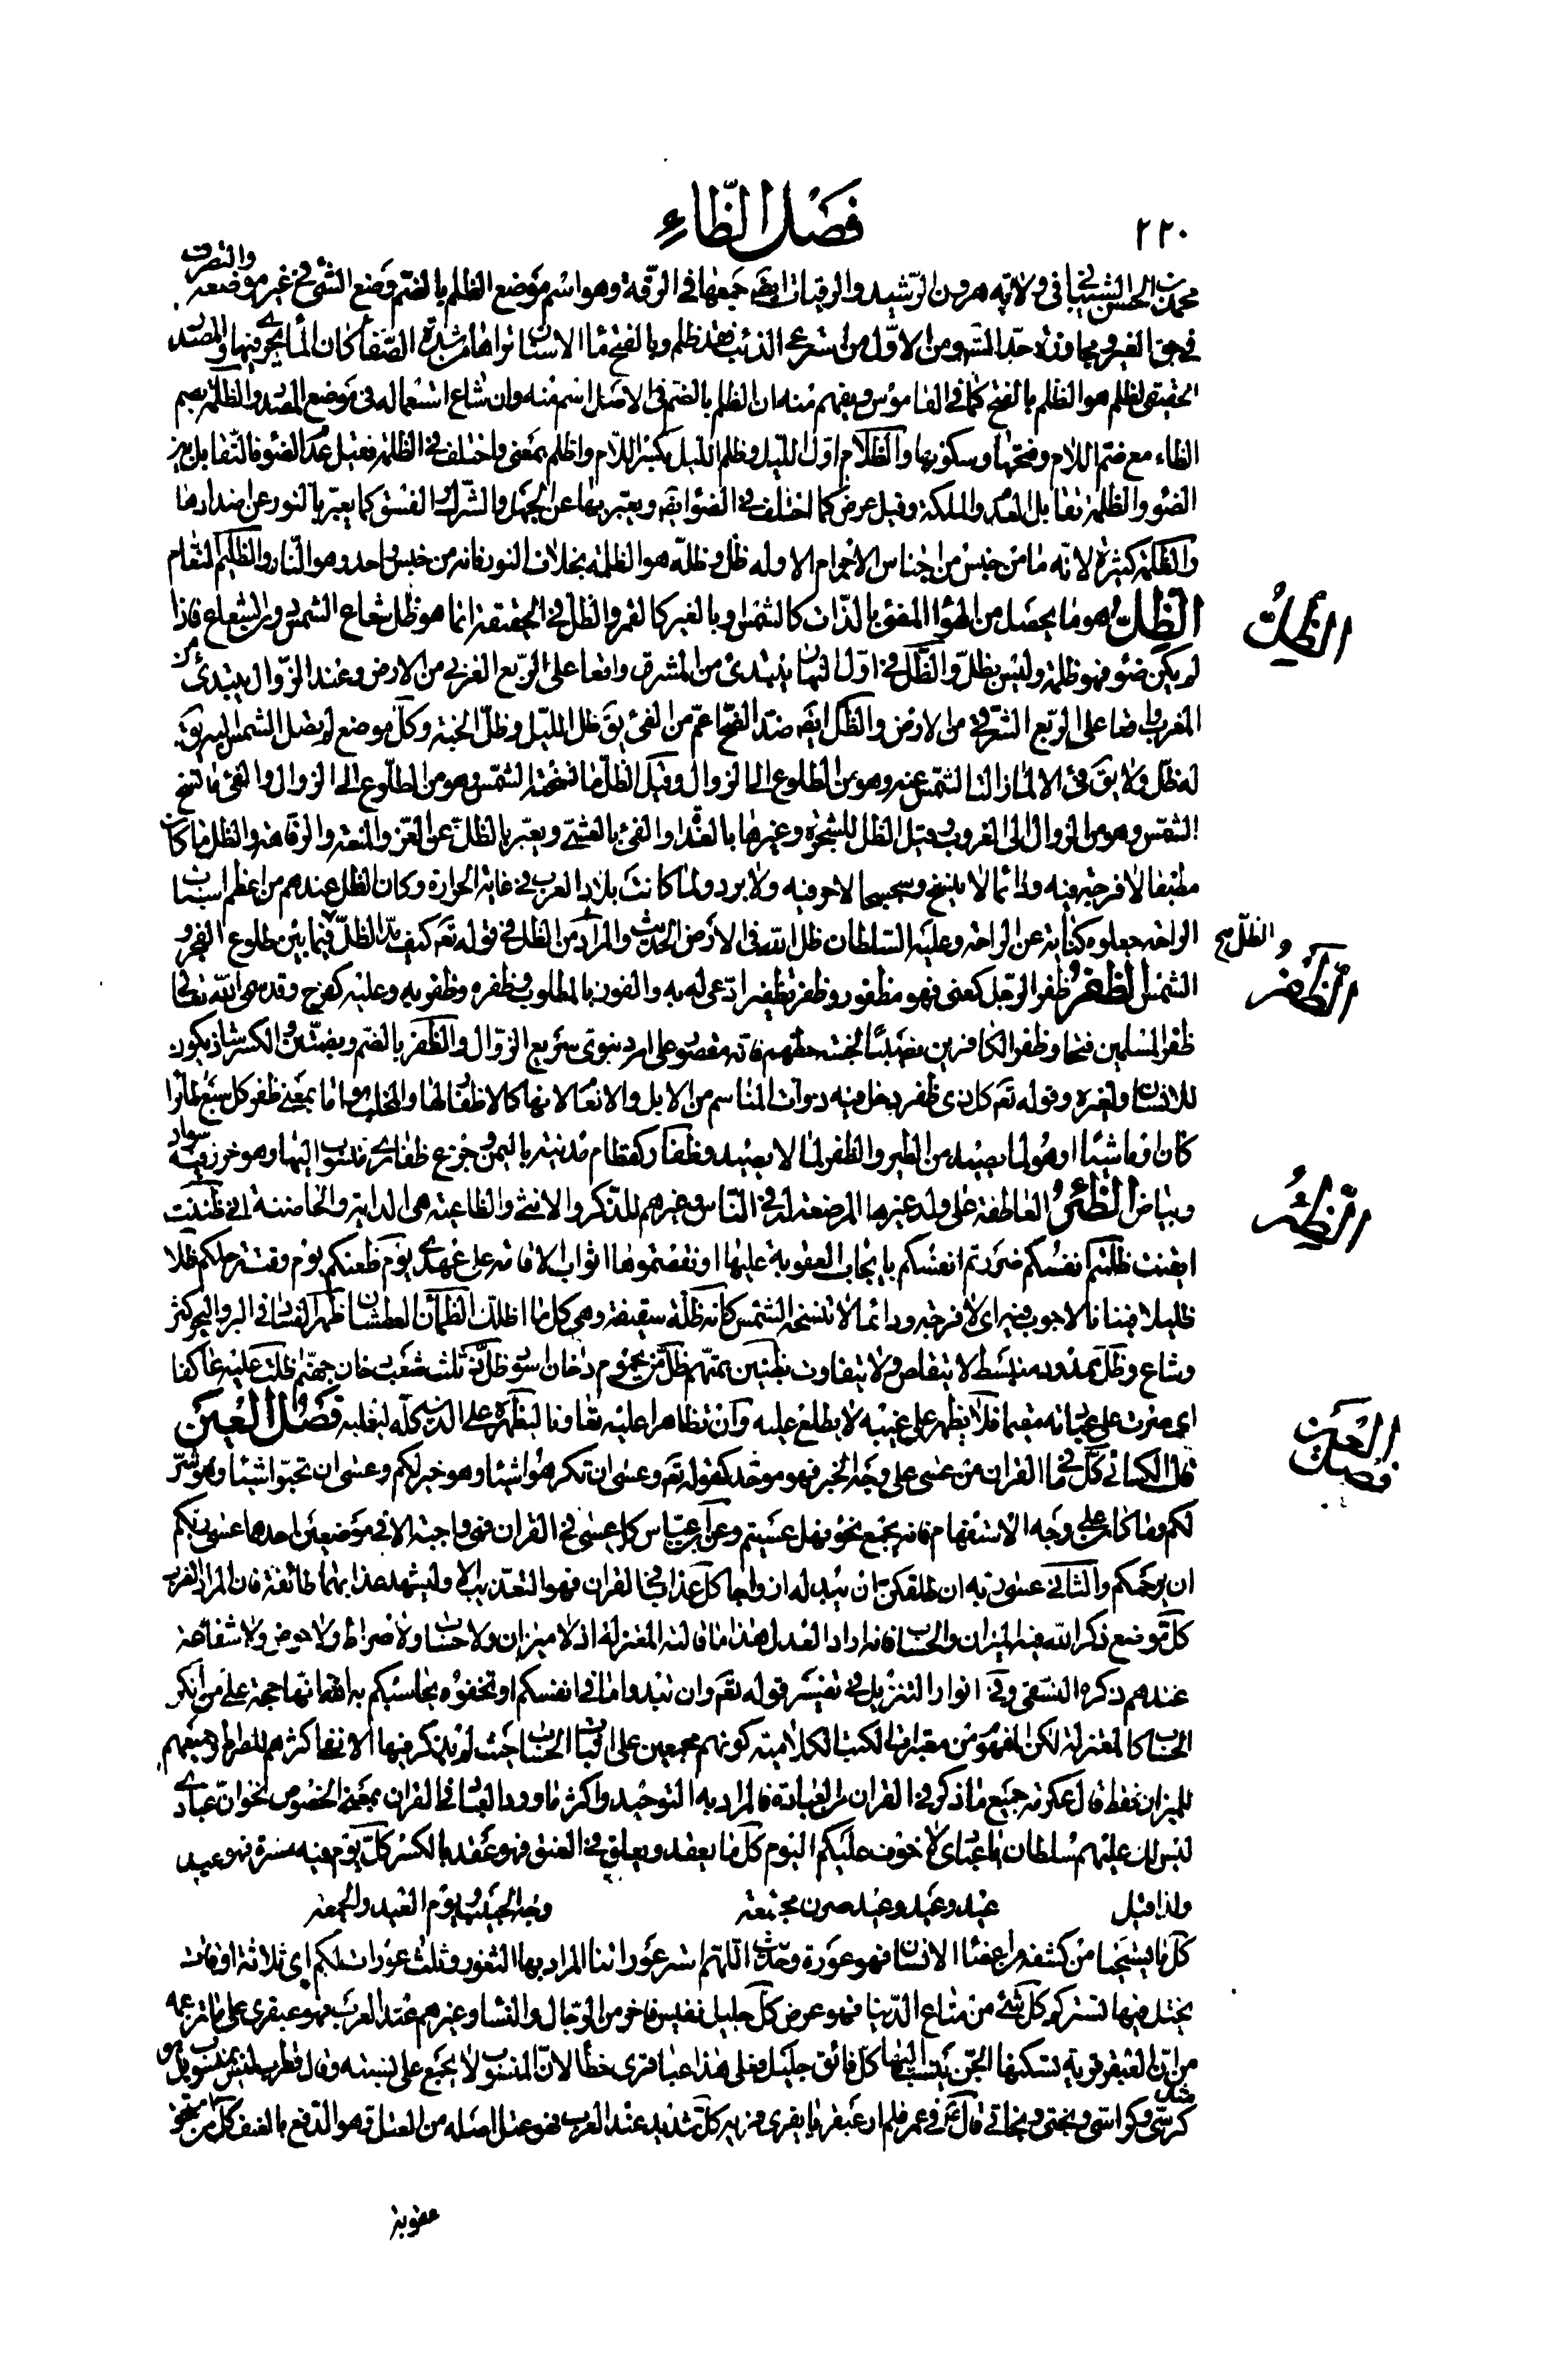 ٢٢٠
فصل الظاء
محمد بن الحسن الشيبانى فى ولايته هرون الرشيد والرقيات ايضه جمعها فى الرقة وهو اسم موضع الظلم بالضم وضع الشئ فى غير موضعه والتصرف
فى حق الغير ومجاوزة حد الشرع ومن الاول من استرعى الذئب فقد ظلم وبالفتح ماء الاسنان تراها من شدة الصفاء كان الماء يجرى فيها والمصدر
الحقيقى لظلم هو الظلم بالفتح كما فى القاموس ويفهم منه ان الظلم بالضم فى الاصل اسم منه وان شاع استعماله فى موضع المصدر والظلمة بضم
الظاء مع ضم اللام وفتحها وسكونها والظلام اول الليل وظلم الليل بكسر اللام واظلم بمعنى واختلف فى الظلمة فقيل عدم الضوء فالتقابل بين
الضوء والظلمة تقابل العدم والملكة وقيل عرض كما اختلف فى الضوء ايضه ويعبر بها عن الجهل والشرك والفسق كما يعبر بالنور عن اضدادها
والظلمة كثيرة لانه ما من جنس من اجناس الاجرام الا وله ظل وظله هو الظلمة بخلاف النور فانه من جنس واحد وهو النار والظليم النعام
الظل هو ما يحصل من الهواء المضئ بالذات كالشمس او بالغير كالقمر والظل فى الحقيقة انما هو ظل شعاع الشمس دون الشعاع فاذا
لم يكن ضوء فهو ظلمة وليس بظل والظل فى اول النهار يبتدئ من المشرق واقعا على الربع الغربى من الارض وعند الزوال يبتدئ من
المغرب واقعا على الربع الشرقى من الارض والظل ايضه ضد الضح اعم من الفئ يقه ظل الليل وظل الجنة وكل موضع لم يصل الشمس اليه يقه
له ظل ولا يقه فئ الا لما زال الشمس عنه وهو من الطلوع الى الزوال وقيل الظل ما نسخته الشمس وهو من الطلوع الى الزوال والفئ ما نسخ
الشمس وهو من الزوال الى الغروب وقيل الظل للشجرة وغيرها بالغداة والفئ بالعشى ويعبر بالظل عن العز والمنعة والرفاهة والظل ما كان
مطبقا لا فرجة فيه ودائما لا ينسخ وسجسجا لا حر فيه ولا برد ولما كانت بلاد العرب فى غاية الحرارة وكان الظل عندهم من اعظم اسباب
الراحة جعلوه كناية عن الراحة وعليه السلطان ظل الله فى الارض الحديث والمراد من الظل فى قوله تعه كيف مد الظل فيما بين طلوع الفجر و
الشمس الظفر ظفر الرجل كعنى فهو مظفور وظفر تظفيرا دعى له به والفوز بالمطلوب وظفره وظفر به وعليه كفرح وقد سمى الله تعالى
ظفر المسلمين فتحا وظفر الكافرين نصيبا لخسة حظهم فانه مقصور على امر دنيوى سريع الزوال والظفر بالضم وبضمتين والكسر شاذ يكون
للانسان ولغيره وقوله تعه كل ذى ظفر دخل فيه ذوات المناسم من الابل والانعام لانها كالاظفار لها والمخلب هو اما بمعنى ظفر كل سبع طائرا
كان او ماشيا او هو لما يصيد من الطير والظفر لما لا يصيد وظفار كقطام مدينة باليمن وجزع ظفارى منسوب اليها وهو خرز فيه سواد
وبياض الظئر العاطفة على ولد غيرها المرضعة له فى الناس وغيرهم للذكر والانثى والظاعنة هى الداية والحاضنة انى ظننت
ايقنت ظلمتم انفسكم ضررتم انفسكم بايجاب العقوبة عليها او نقصتموها الثواب الاقامة على عهدى يوم ظعنكم يوم وقت رحلكم ظلا
ظليلا فينانا لا جوب فيه اى لا فرجة ودائما لا تنسخه الشمس كانه ظلة سقيفة وهى كل ما اظلك الظمآن العطشان ظهر الفساد فى البر والبحر كثر
وشاع وظل ممدود منبسط لا يتقاص ولا يتفاوت بظنين بمتهم ظل من يحموم دخان اسود ظل ذى ثلث شعب دخان جهنم ظلت عليه عاكفا
اى صرت على عبادته مقيما فلا يظهر على غيبه لا يطلع عليه وان تظاهرا عليه تعاونا ليظهره على الدين كله ليغلبه فصل العين
قال الكسائى كل ما فى القران من عسى على وجه الخبر فهو موحد كقوله تعه وعسى ان تكرهوا شيئا وهو خير لكم وعسى ان تحبوا شيئا وهو شر
لكم وما كان على وجه الاستفهام فانه يجمع نحو فهل عسيتم وعن ابن عباس كل عسى فى القران فهى واجبة الا فى موضعين احدهما عسى ربكم
ان يرحمكم والثانى عسى ربه ان طلقكن ان يبدله ازواجا كل عذاب فى القران فهو التعذيب الا وليشهد عذابهما طائفة فان المراد الضرب
كل موضع ذكر الله فيه الميزان والحساب فانه اراد العدل هذا ما قالته المعتزلة اذ لا ميزان ولا حساب ولا صراط ولا حوض ولا شفاعة
عندهم ذكره النسفى وفى انوار التنزيل فى تفسير قوله تعه وان تبدوا ما فى انفسكم او تخفوه يحاسبكم به الله انها حجة على من انكر
الحساب كالمعتزلة لكن المفهوم من معتبرات الكتب الكلامية كونهم مجمعين على اثبات الحساب حيث لم يذكر فيها الا نفى اكثرهم للصراط وجميعهم
للميزان فقط قال عكرمة جميع ما ذكر فى القران من العبادة فالمراد به التوحيد واكثر ما ورد العباد فى القران بمعنى الخصوص نحو ان عبادى
ليس لك عليهم سلطان يا عبادى لا خوف عليكم اليوم كل ما يعقد ويعلق فى العنق فهو عقد بالكسر كل يوم فيه مسرة فهو عيد
ولذا قيل عيد وعيد وعيد صرن مجتمعة وجه الحبيب ويوم العيد والجمعة
كل ما يستحيا من كشفه من اعضاء الانسان فهو عورة وحديث اللهم استر عوراتنا المراد بها الثغور وثلث عورات لكم اى ثلاثة اوقات
يختل فيها تستركم كل شئ من متاع الدنيا فهو عرض كل جليل نفيس فاخر من الرجال والنساء وغيرهم عند العرب فهو عبقرى على ما تزعمه
من ان العبقر قرية تسكنها الجن ينسب اليها كل فائق جليل فعلى هذا عباقرى خطأ لان المنسوب لا يجمع على نسبته وقال قطرب ليس بمنسوب بل هو مثل
كرسى وكراسى وبختى وبخاتى قال عم فى عمر فلم ار عبقريا يفرى فريه كل شديد عند العرب فهو عتل اصله من العتل وهو الدفع بالعنف كل من يستحق
عقوبة
الظل
والظل صح
الظفر
الظئر
فصل العين